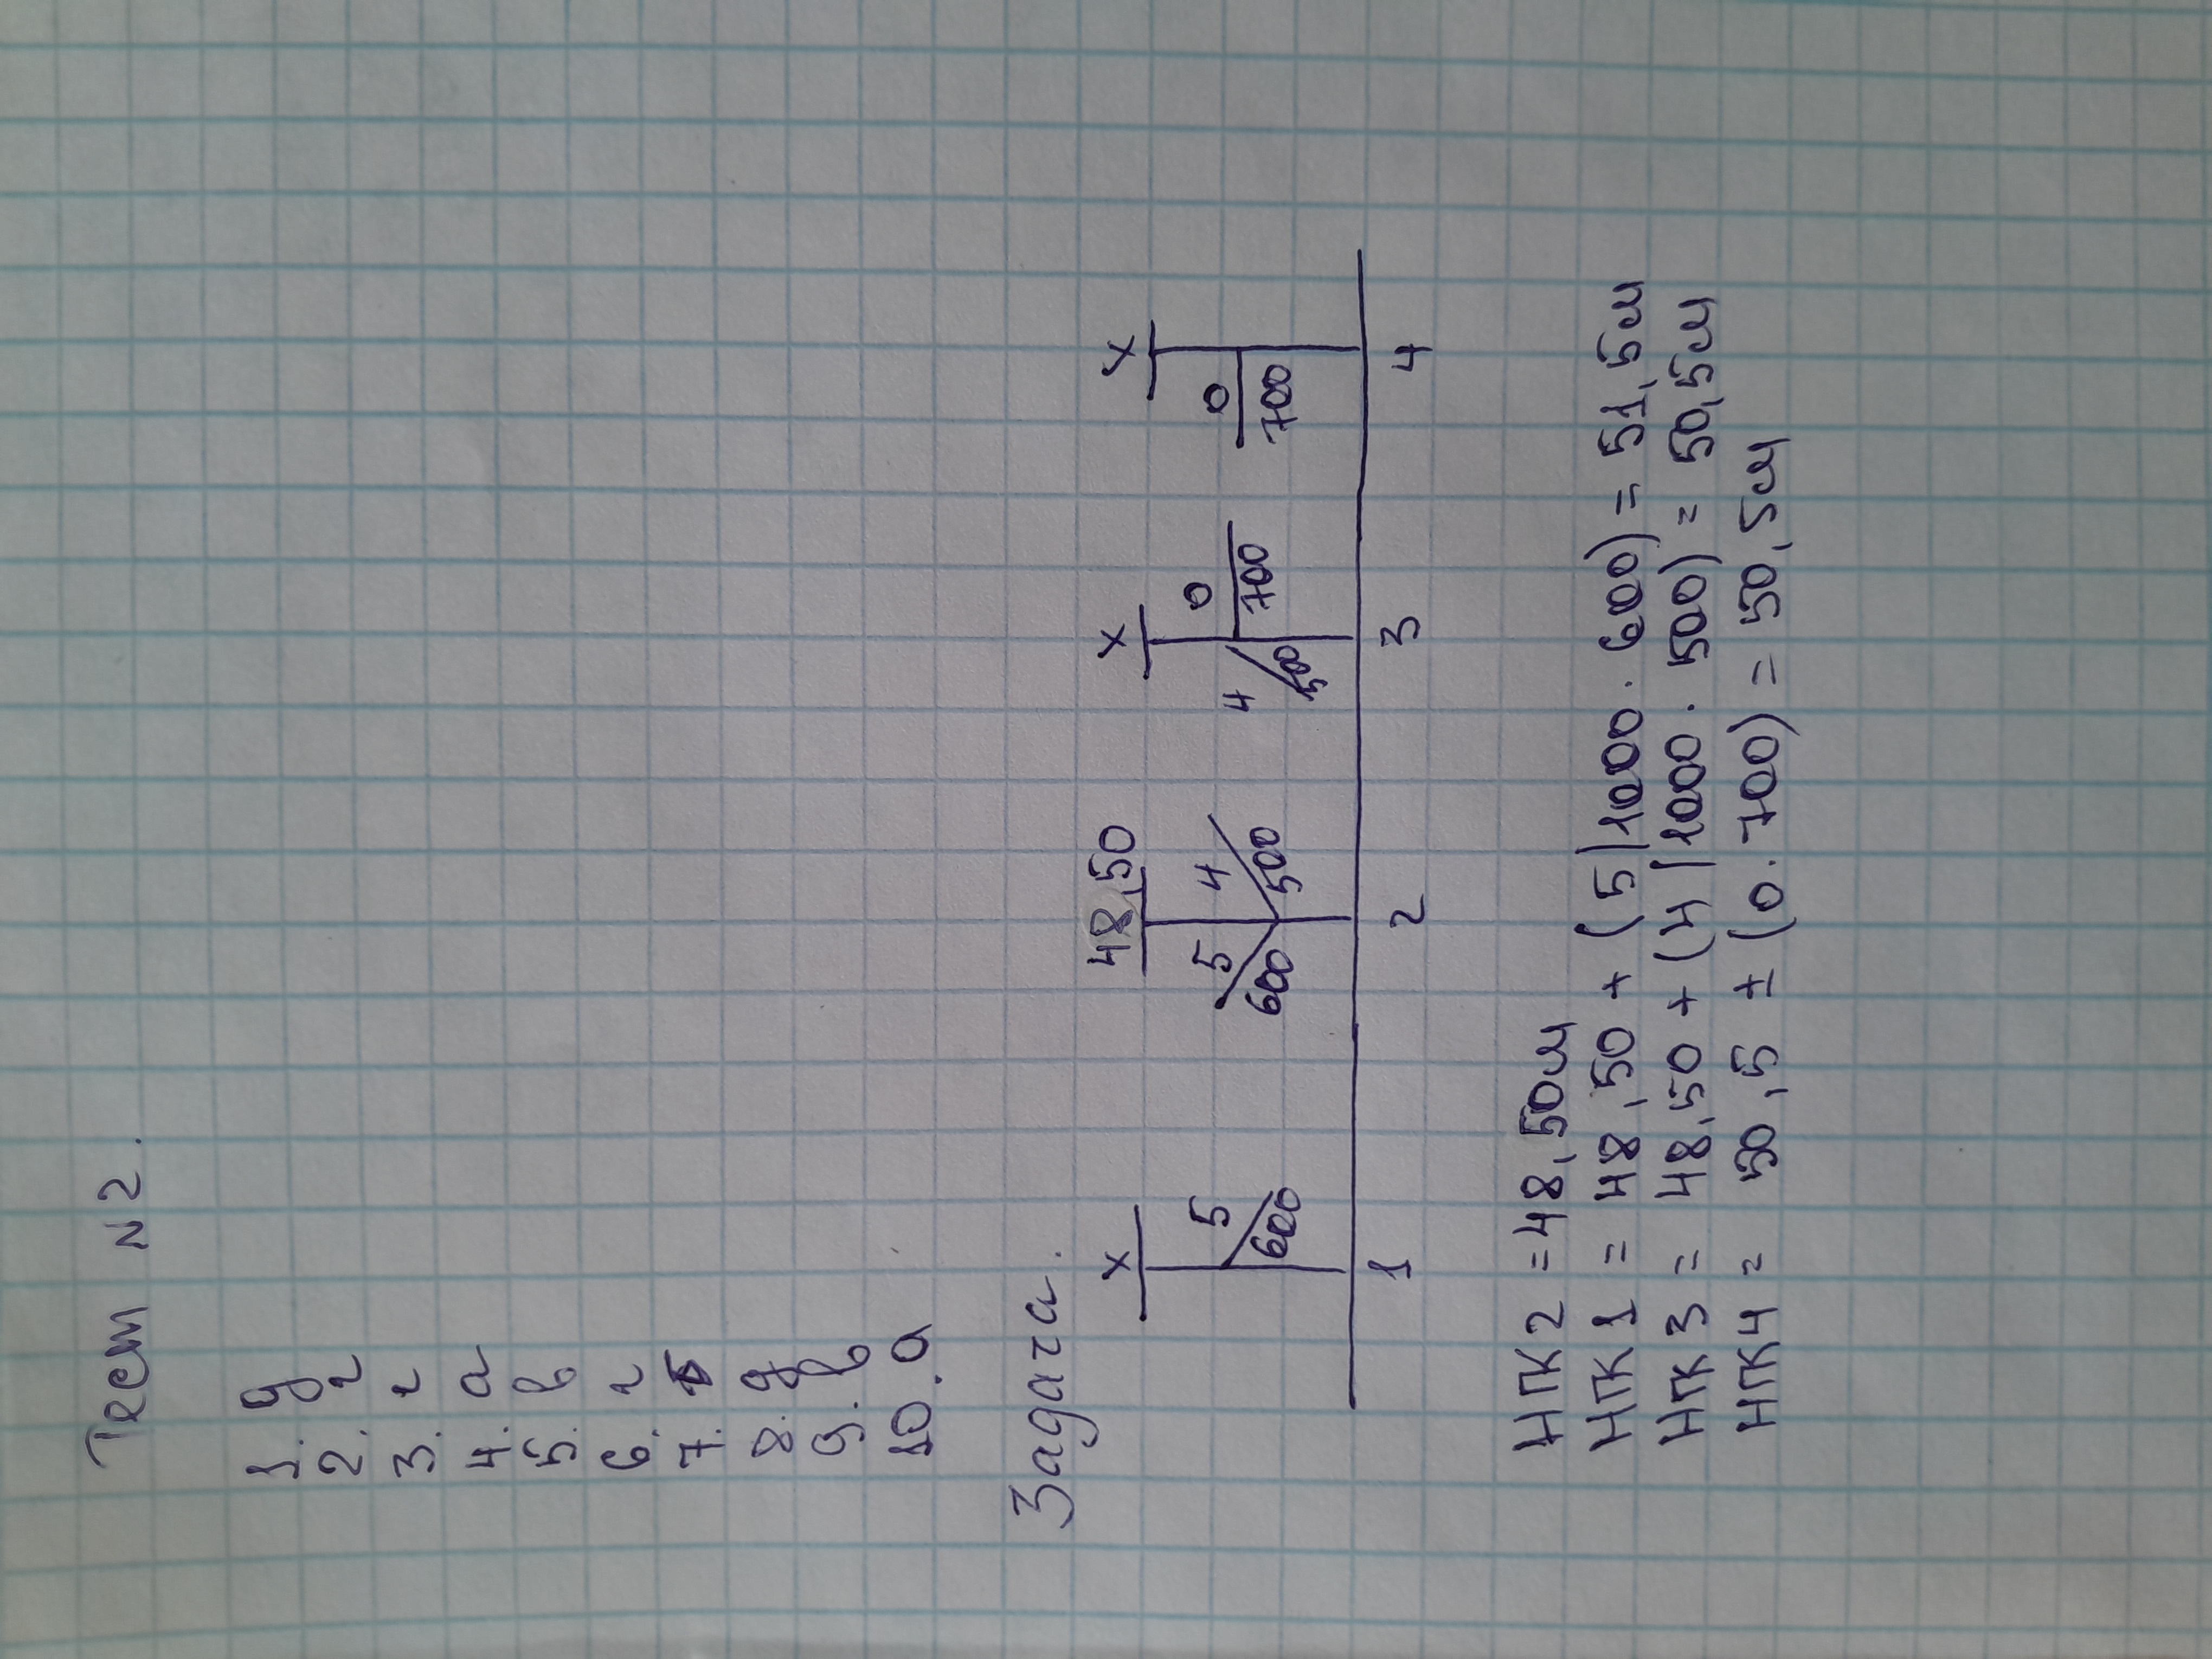 Тест N2.
1. g
2. г
3. г
4. а
5. в
6. г
7. б
8. g
9. в
10. а
Задача.
х 48,50 х х
5 5 4 4 0 0
600 600 500 500 700 700
1 2 3 4
НПК 2 = 48,50м
НПК 1 = 48,50 + (5|1000 · 600) = 51,5м
НПК 3 = 48,50 + (4|1000 · 500) = 50,5м
НПК4 = 50,5 ± (0 · 700) = 50,5м